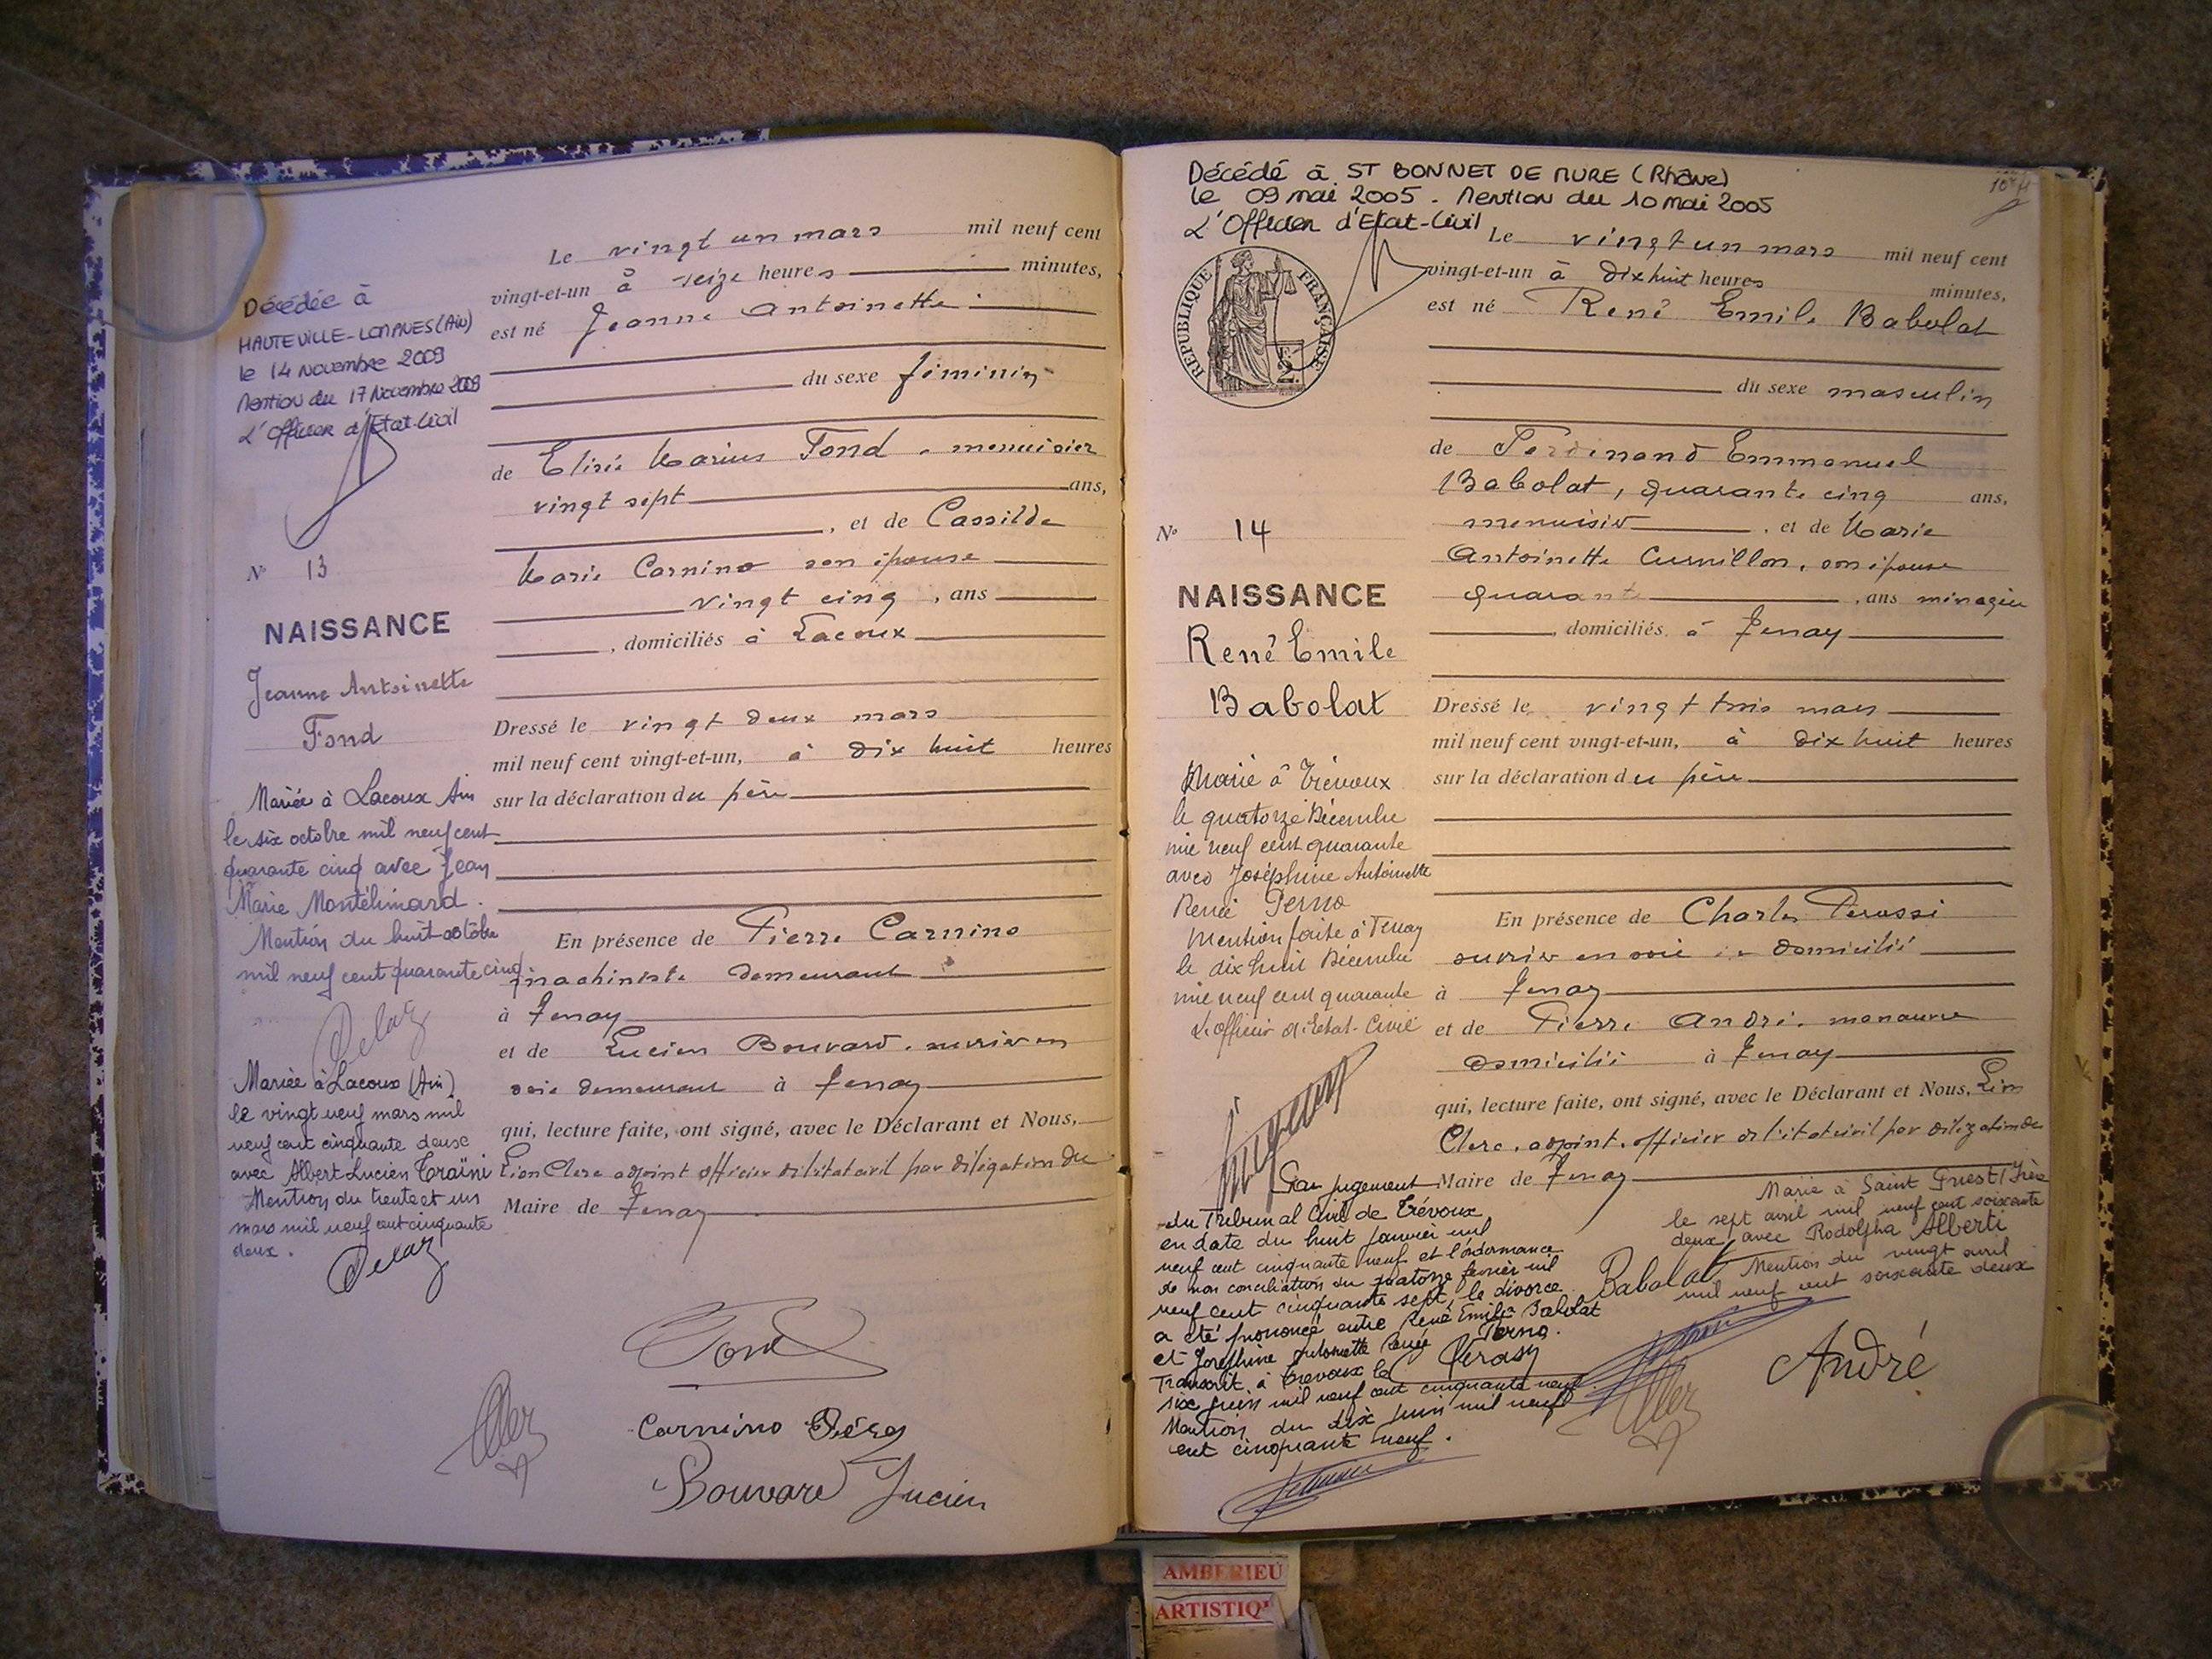 Décédée à
HAUTEVILLE-LOMPNES (Ain)
le 14 Novembre 2009
Mention du 17 Novembre 2009
L'Officier d'Etat-Civil
N° 13
NAISSANCE
Jeanne Antoinette
Fond
Mariée à Lacoux Ain
le six octobre mil neuf cent
quarante cinq avec Jean
Marie Montélimard.
Mention du huit octobre
mil neuf cent quarante cinq
Mariée à Lacoux (Ain)
le vingt neuf mars mil
neuf cent cinquante deux
avec Albert Lucien Traïni
Mention du trente et un
mars mil neuf cent cinquante
deux.
Le vingt un mars mil neuf cent
vingt-et-un à seize heures minutes,
est né Jeanne Antoinette
du sexe féminin
de Elisée Marius Fond, menuisier
vingt sept ans,
, et de Cassilde
Marie Carnino son épouse
vingt cinq , ans
, domiciliés à Lacoux
Dressé le vingt deux mars
mil neuf cent vingt-et-un, à dix huit heures
sur la déclaration du père
En présence de Pierre Carnino
machiniste demeurant
à Tenay
et de Lucien Bouvard, ouvrier en
soie demeurant à Tenay
qui, lecture faite, ont signé, avec le Déclarant et Nous,
Léon Clerc adjoint officier de l'état civil par délégation du
Maire de Tenay
Fond
Clerc
Carnino
Bouvard Lucien
Décédé à ST BONNET DE MURE (Rhône)
le 09 mai 2005. Mention du 10 mai 2005
L'Officier d'Etat-Civil
REPUBLIQUE FRANÇAISE
2
N° 14
NAISSANCE
René Emile
Babolat
Marié à Trévoux
le quatorze Décembre
mil neuf cent quarante
avec Joséphine Antoinette
Renée Perno
Mention faite à Tenay
le dix huit Décembre
mil neuf cent quarante
L'officier d'Etat-Civil
Par jugement
du Tribunal Civil de Trévoux
en date du huit janvier mil
neuf cent cinquante neuf et l'ordonnance
de non conciliation du quatorze février mil
neuf cent cinquante sept, le divorce
a été prononcé entre René Emile Babolat
et Joséphine Antoinette Renée Perno.
Transcrit à Trévoux le
six juin mil neuf cent cinquante neuf
Mention du dix juin mil neuf
cent cinquante neuf.
Le vingt un mars mil neuf cent
vingt-et-un à dix huit heures minutes,
est né René Emile Babolat
du sexe masculin
de Ferdinand Emmanuel
Babolat, quarante cinq ans,
menuisier , et de Marie
Antoinette Curvillon, son épouse
quarante , ans ménagère
, domiciliés à Tenay
Dressé le vingt trois mars
mil neuf cent vingt-et-un, à dix huit heures
sur la déclaration du père
En présence de Charles Perassi
ouvrier en soie domicilié
à Tenay
et de Pierre André, manœuvre
domicilié à Tenay
qui, lecture faite, ont signé, avec le Déclarant et Nous, Léon
Clerc, adjoint, officier de l'état civil par délégation du
Maire de Tenay
Marié à Saint Priest / Isère
le sept avril mil neuf cent soixante
deux, avec Rodolpha Alberti
Mention du vingt avril
mil neuf cent soixante deux
Babolat
André
Clerc
AMBERIEU
ARTISTIQ